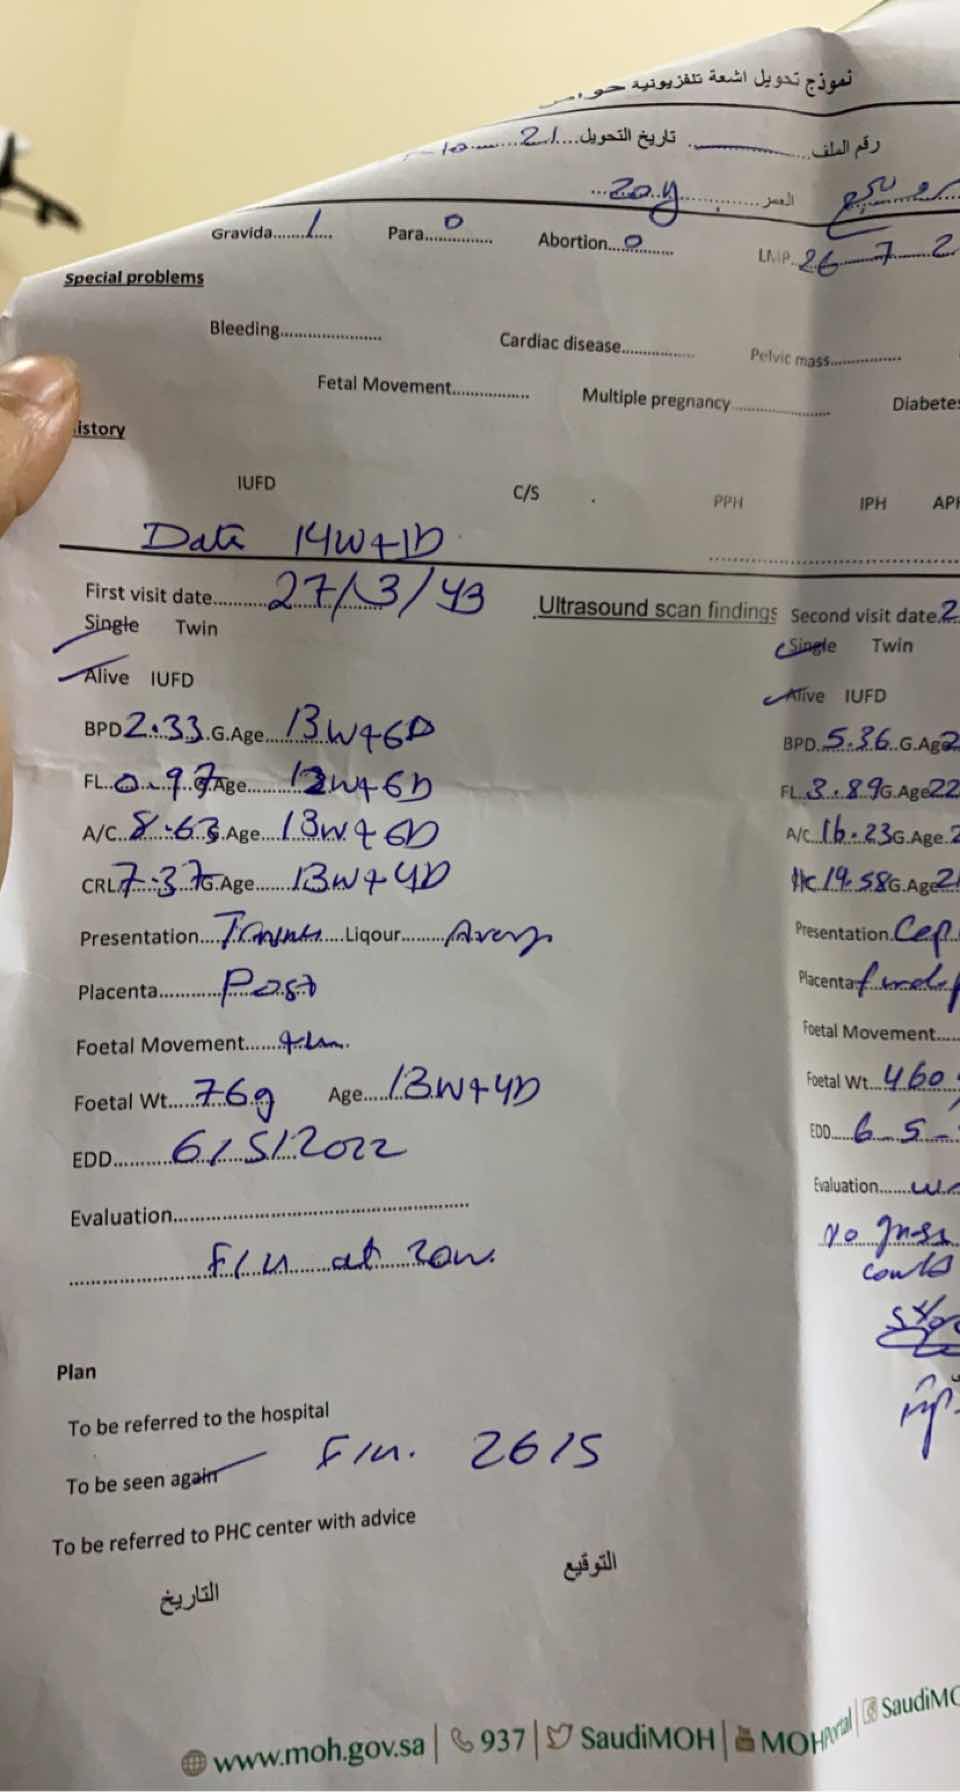 نموذج تحويل اشعة تلفزيونية
رقم الملف.......... تاريخ التحويل....21......10
العمر..........20y...
Gravida.......1.... Para......0........ Abortion...0........ LMP..26 - 7 - 2
Special problems
Bleeding.................... Cardiac disease............... Pelvic mass...............
Fetal Movement................ Multiple pregnancy.................... Diabetes
istory
IUFD C/S . PPH IPH AP
Date 14W+1D
First visit date..........27/3/43
Single Twin
Alive IUFD
BPD 2.33.G.Age....13W+6D
FL..0.97G.Age........12W+6D
A/C. 8.63G.Age....13W+6D
CRL7.37G.Age.......13W+4D
Presentation.... Liqour.......
Placenta...........Post
Foetal Movement......
Foetal Wt....76g Age....13W+4D
EDD...........6/5/2022
Evaluation..................................................
F/U at 20w.
Ultrasound scan findings
Second visit date.2
Single Twin
Alive IUFD
BPD.5.36..G.Age2
FL.3.89G.Age22
A/C.16.23G.Age.2
HC 19.58G.Age21
Presentation.Cep
Placenta
Foetal Movement....
Foetal Wt...460
EDD....6-5-
Evaluation......
No gross
could
Plan
To be referred to the hospital
To be seen again F/U. 26/5
To be referred to PHC center with advice
التاريخ التوقيع
www.moh.gov.sa | 937 | SaudiMOH | MOHPortal | SaudiMO